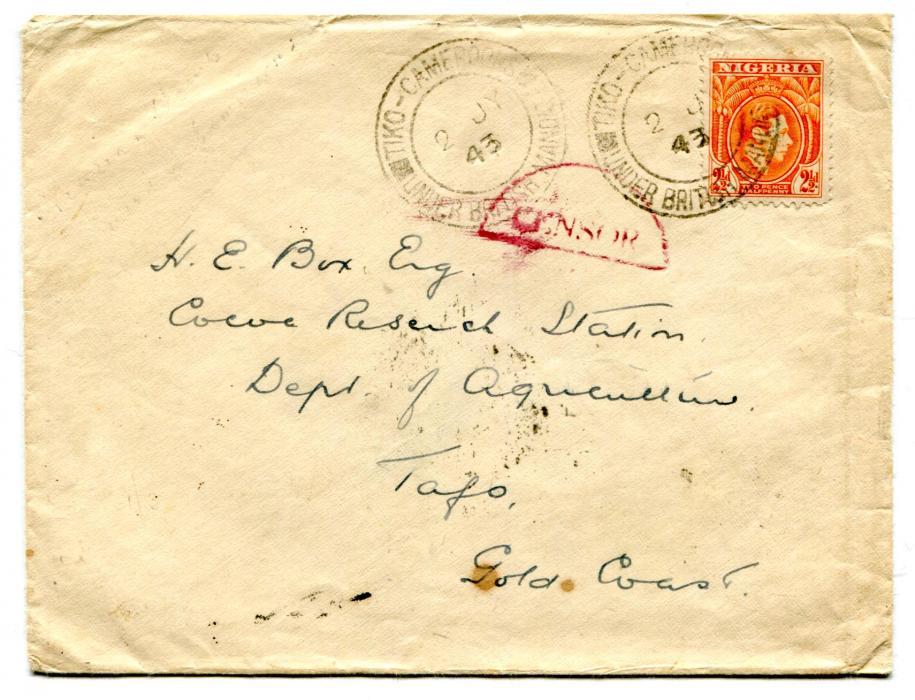 TIKO-CAMEROONS
UNDER BRITISH MANDATE
2 J
43
TIKO-CAMEROONS
UNDER BRITISH
2
43
NIGERIA
2½d. 2½d.
TWO PENCE
HALFPENNY
CENSOR
H. E. Box Esq.
Cocoa Research Station,
Dept. of Agriculture.
Tafo,
Gold Coast.